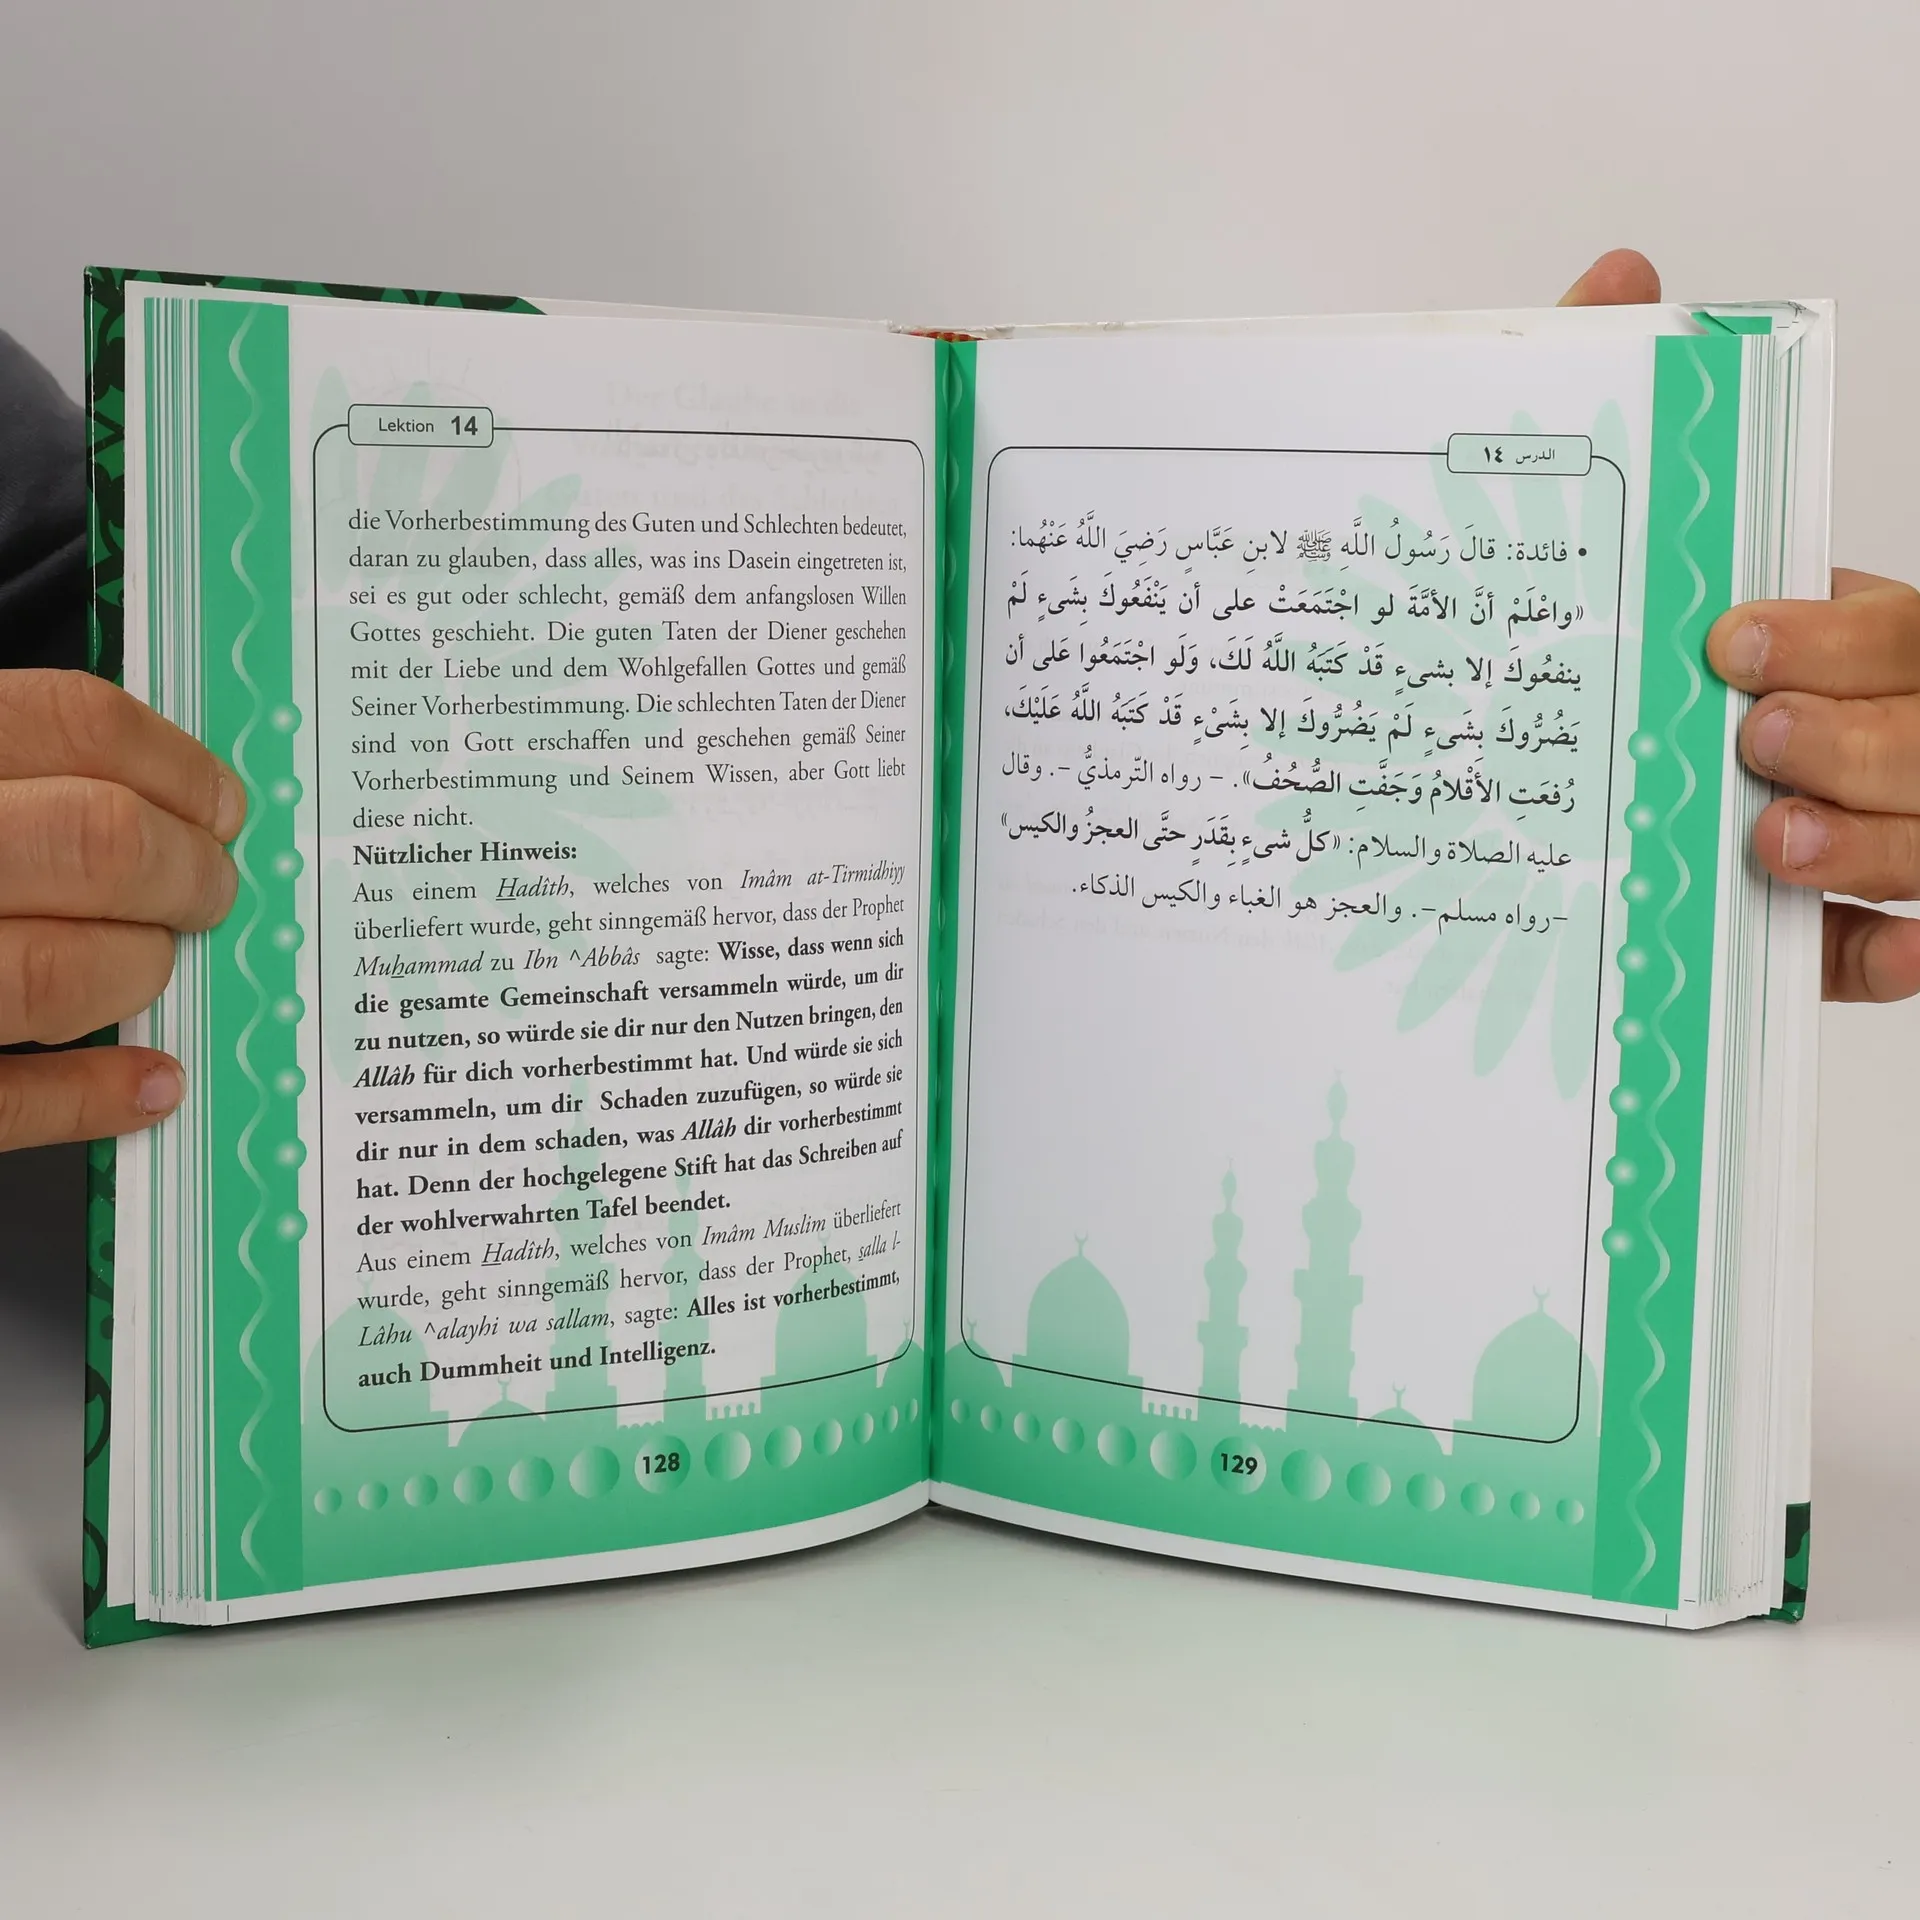 Lektion 14
die Vorherbestimmung des Guten und Schlechten bedeutet,
daran zu glauben, dass alles, was ins Dasein eingetreten ist,
sei es gut oder schlecht, gemäß dem anfangslosen Willen
Gottes geschieht. Die guten Taten der Diener geschehen
mit der Liebe und dem Wohlgefallen Gottes und gemäß
Seiner Vorherbestimmung. Die schlechten Taten der Diener
sind von Gott erschaffen und geschehen gemäß Seiner
Vorherbestimmung und Seinem Wissen, aber Gott liebt
diese nicht.
Nützlicher Hinweis:
Aus einem Hadîth, welches von Imâm at-Tirmidhiyy
überliefert wurde, geht sinngemäß hervor, dass der Prophet
Muhammad zu Ibn ^Abbâs sagte: Wisse, dass wenn sich
die gesamte Gemeinschaft versammeln würde, um dir
zu nutzen, so würde sie dir nur den Nutzen bringen, den
Allâh für dich vorherbestimmt hat. Und würde sie sich
versammeln, um dir Schaden zuzufügen, so würde sie
dir nur in dem schaden, was Allâh dir vorherbestimmt
hat. Denn der hochgelegene Stift hat das Schreiben auf
der wohlverwahrten Tafel beendet.
Aus einem Hadîth, welches von Imâm Muslim überliefert
wurde, geht sinngemäß hervor, dass der Prophet, salla l-
Lâhu ^alayhi wa sallam, sagte: Alles ist vorherbestimmt,
auch Dummheit und Intelligenz.
128
الدرس ١٤
• فائدة: قالَ رَسُولُ اللَّهِ ﷺ لابنِ عَبَّاسٍ رَضِيَ اللَّهُ عَنْهُما:
«واعْلَمْ أنَّ الأمَّةَ لو اجْتَمَعَتْ على أن يَنْفَعُوكَ بِشَىءٍ لَمْ
ينفعُوكَ إلا بشىءٍ قَدْ كَتَبَهُ اللَّهُ لَكَ، وَلَو اجْتَمَعُوا عَلى أن
يَضُرُّوكَ بِشَىءٍ لَمْ يَضُرُّوكَ إلا بِشَىْءٍ قَدْ كَتَبَهُ اللَّهُ عَلَيْكَ،
رُفعَتِ الأقْلامُ وَجَفَّتِ الصُّحُفُ». - رواه التّرمذيُّ -. وقال
عليه الصلاة والسلام: «كلُّ شىءٍ بِقَدَرٍ حتَّى العجزُ والكيس»
-رواه مسلم-. والعجز هو الغباء والكيس الذكاء.
129